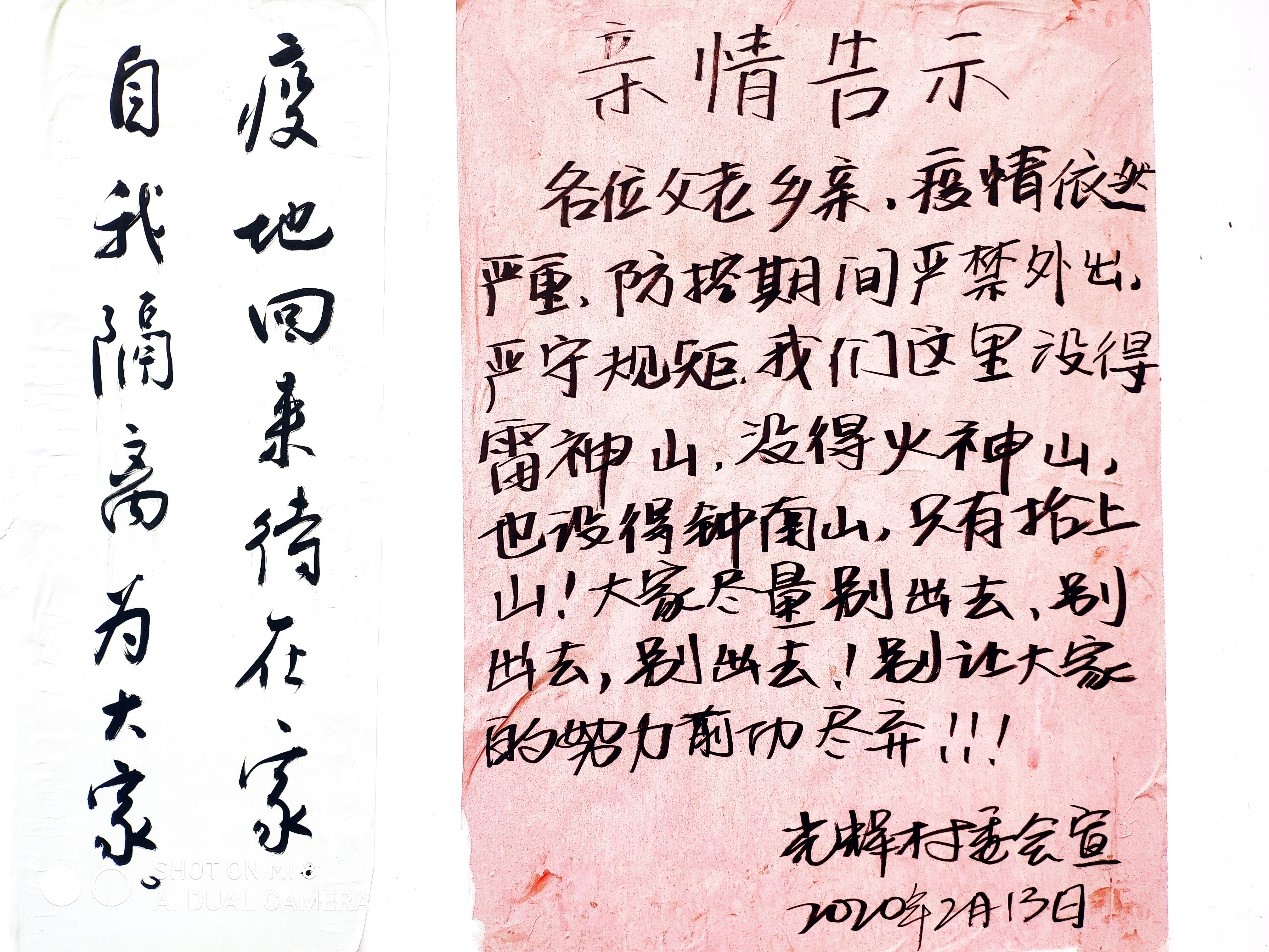 疫地回来待在家
自我隔离为大家。
亲情告示
各位父老乡亲,疫情依然
严重,防控期间严禁外出,
严守规矩.我们这里没得
雷神山,没得火神山,
也没得钟南山,只有抬上
山!大家尽量别出去、别
出去,别出去!别让大家
的努力前功尽弃!!!
光辉村委会宣
2020年2月13日
SHOT ON MI 6
AI DUAL CAMERA